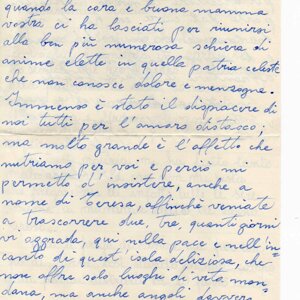 quando la cara e buona mamma
vostra ci ha lasciati per riunirsi
alla ben più numerosa schiera di
anime elette in quella patria celeste
che non conosce dolore e menzogna.
Immenso è stato il dispiacere di
noi tutti per l'amaro distacco;
ma molto grande è l'affetto che
nutriamo per voi e perciò mi
permetto d'insistere, anche a
nome di Teresa, affinché veniate
a trascorrere due, tre, quanti giorni
vi aggrada, qui nella pace e nell'in=
canto de quest'isola deliziosa, che
non offre solo luoghi di vita mon=
dana, ma anche angoli davvero